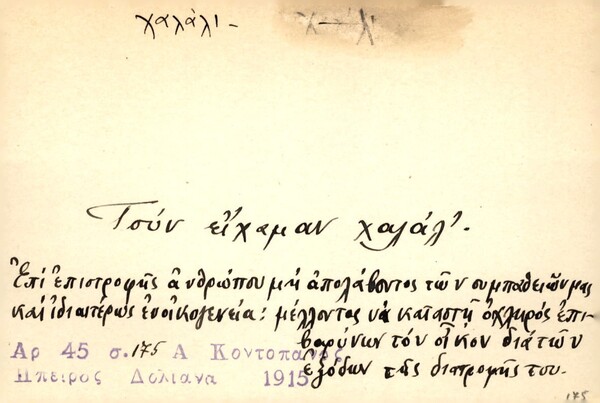 χαλάλι -
χ—χ
Τσούν είχαμαν χαλάλ'.
Ἐπί ἐπιστροφῆς ἀνθρώπου μή ἀπολάβοντος τῶν συμπαθειῶν μας
καί ἰδιαιτέρως ἐν οἰκογενείᾳ: μέλλοντος νά καταστῇ ὀχληρός ἐπι-
βαρύνων τόν οἶκον διά τῶν
ἐξόδων τῆς διατροφῆς του.
Αρ 45 σ. 175 Α Κοντοπάνος
Ηπειρος Δολιανα 1915
175